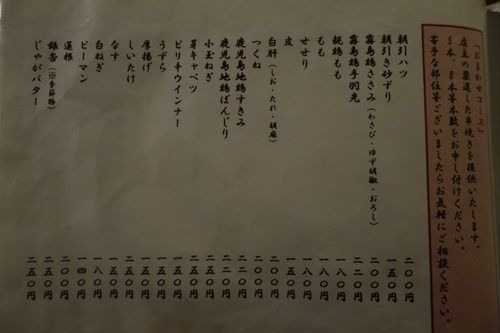 「おまかせコース」
店主の厳選した串焼きを提供いたします。
5本、8本等本数をお申し付けください。
苦手な部位等ございましたらお気軽にご相談ください。
朝引ハツ 二〇〇円
朝引き砂ずり 一五〇円
霧島鶏ささみ（わさび・ゆず胡椒・おろし） 二〇〇円
霧島鶏手羽先 二二〇円
親鶏もも 一八〇円
もも 一八〇円
せせり 一八〇円
皮 一五〇円
白肝（しお・たれ・胡麻） 二〇〇円
つくね 二〇〇円
鹿児島地鶏すきみ 二二〇円
鹿児島地鶏ぼんじり 二二〇円
小玉ねぎ 一五〇円
芽キャベツ 二五〇円
ピリ辛ウインナー 一五〇円
うずら 一五〇円
厚揚げ 一五〇円
しいたけ 二五〇円
なす 一五〇円
白ねぎ 一八〇円
ピーマン 一四〇円
蓮根 二〇〇円
銀杏（※季節物） 二五〇円
じゃがバター 二五〇円